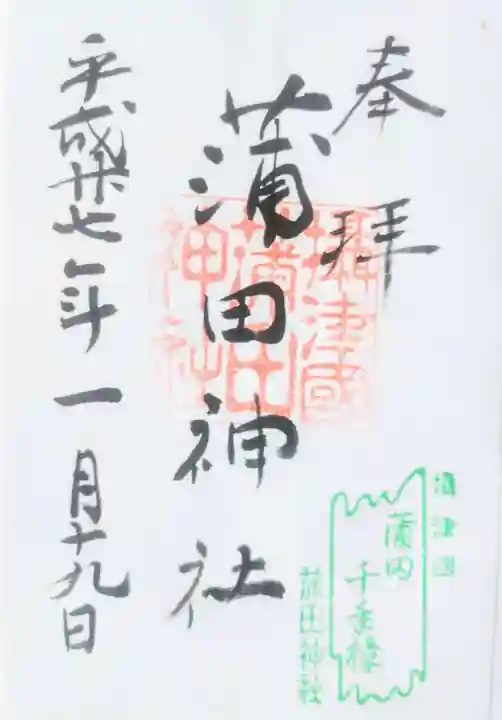 奉拝
蒲田神社
摂津國
蒲田
神社
平成廿七年一月十九日
摂津国
蒲田
蒲田神社